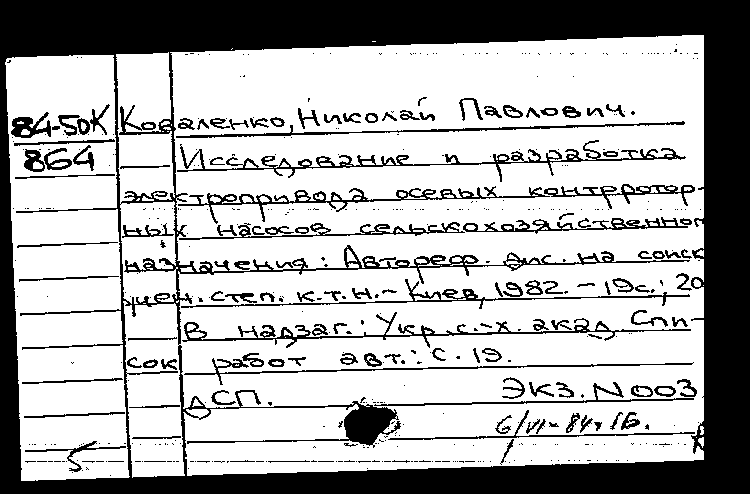 84-50К Коваленко, Николай Павлович.
864 Исследование и разработка
электропривода осевых контрротор-
ных насосов сельскохозяйственног
назначения: Автореф. дис. на соиск
учен. степ. к.т.н. - Киев, 1982. - 19с.; 20
В надзаг.: Укр. с.-х. акад. Спи-
сок работ авт.: с. 19.
ДСП. Экз. N003
6/VI-84г.
5